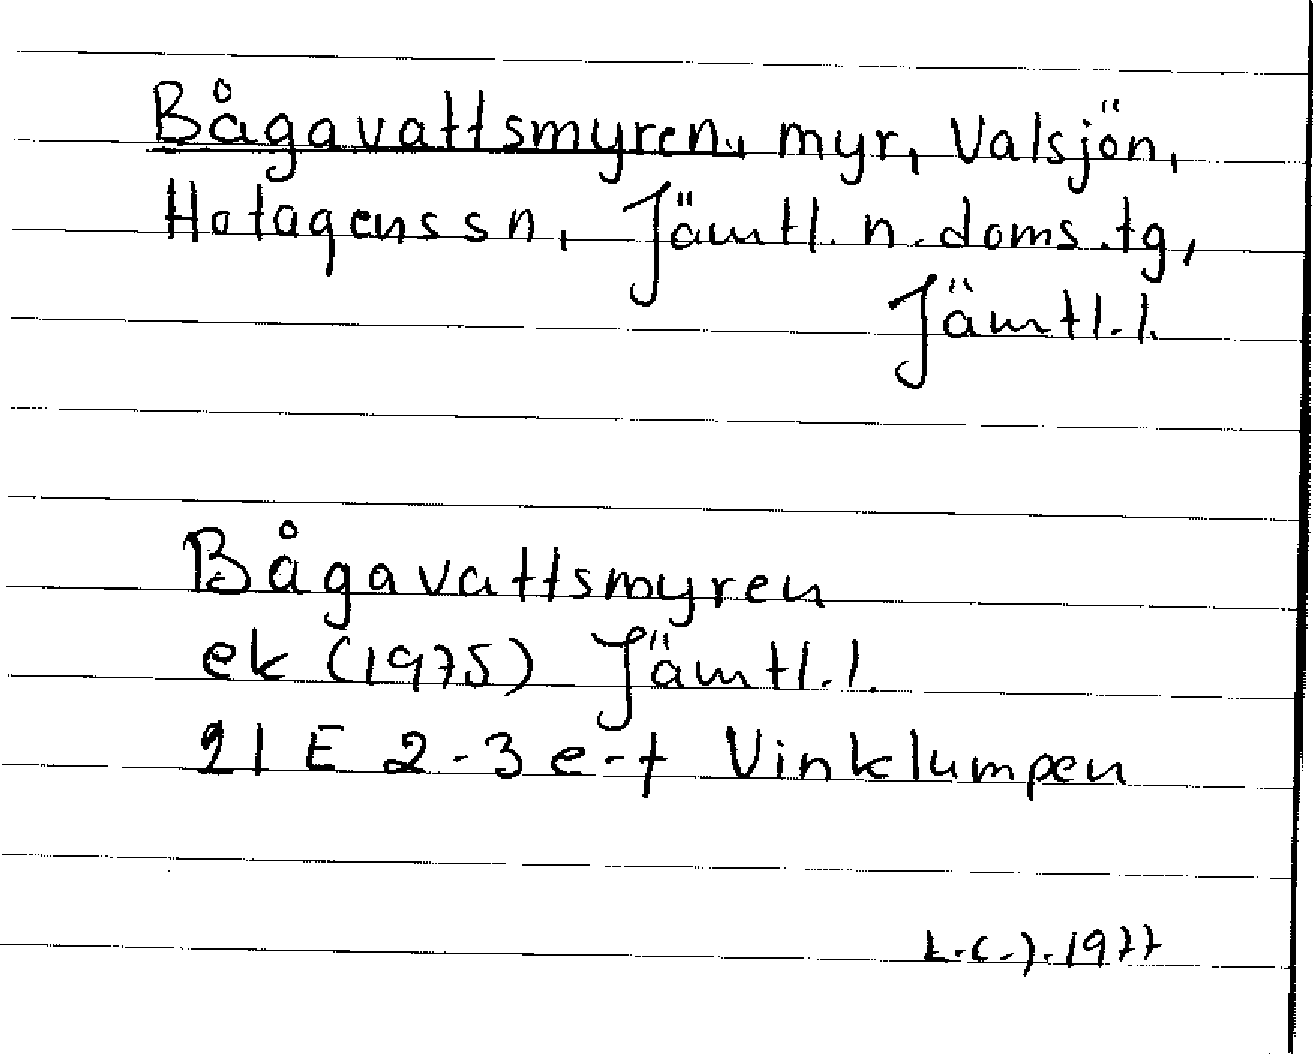 Bågavattsmyren, myr, Valsjön,
Hotagens sn, Jämtl. n. doms.tg,
Jämtl.l.
Bågavattsmyren
ek (1975) Jämtl.l.
21 E 2-3 e-f Vinklumpen
L.C.J. 1977